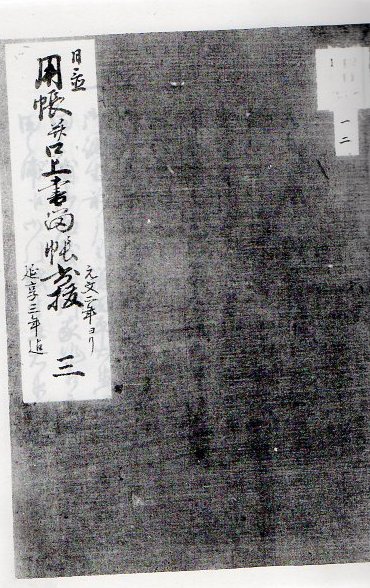 一二
日並
用帳并口上書留帳書抜
元文二年ヨリ
延享三年迠
三